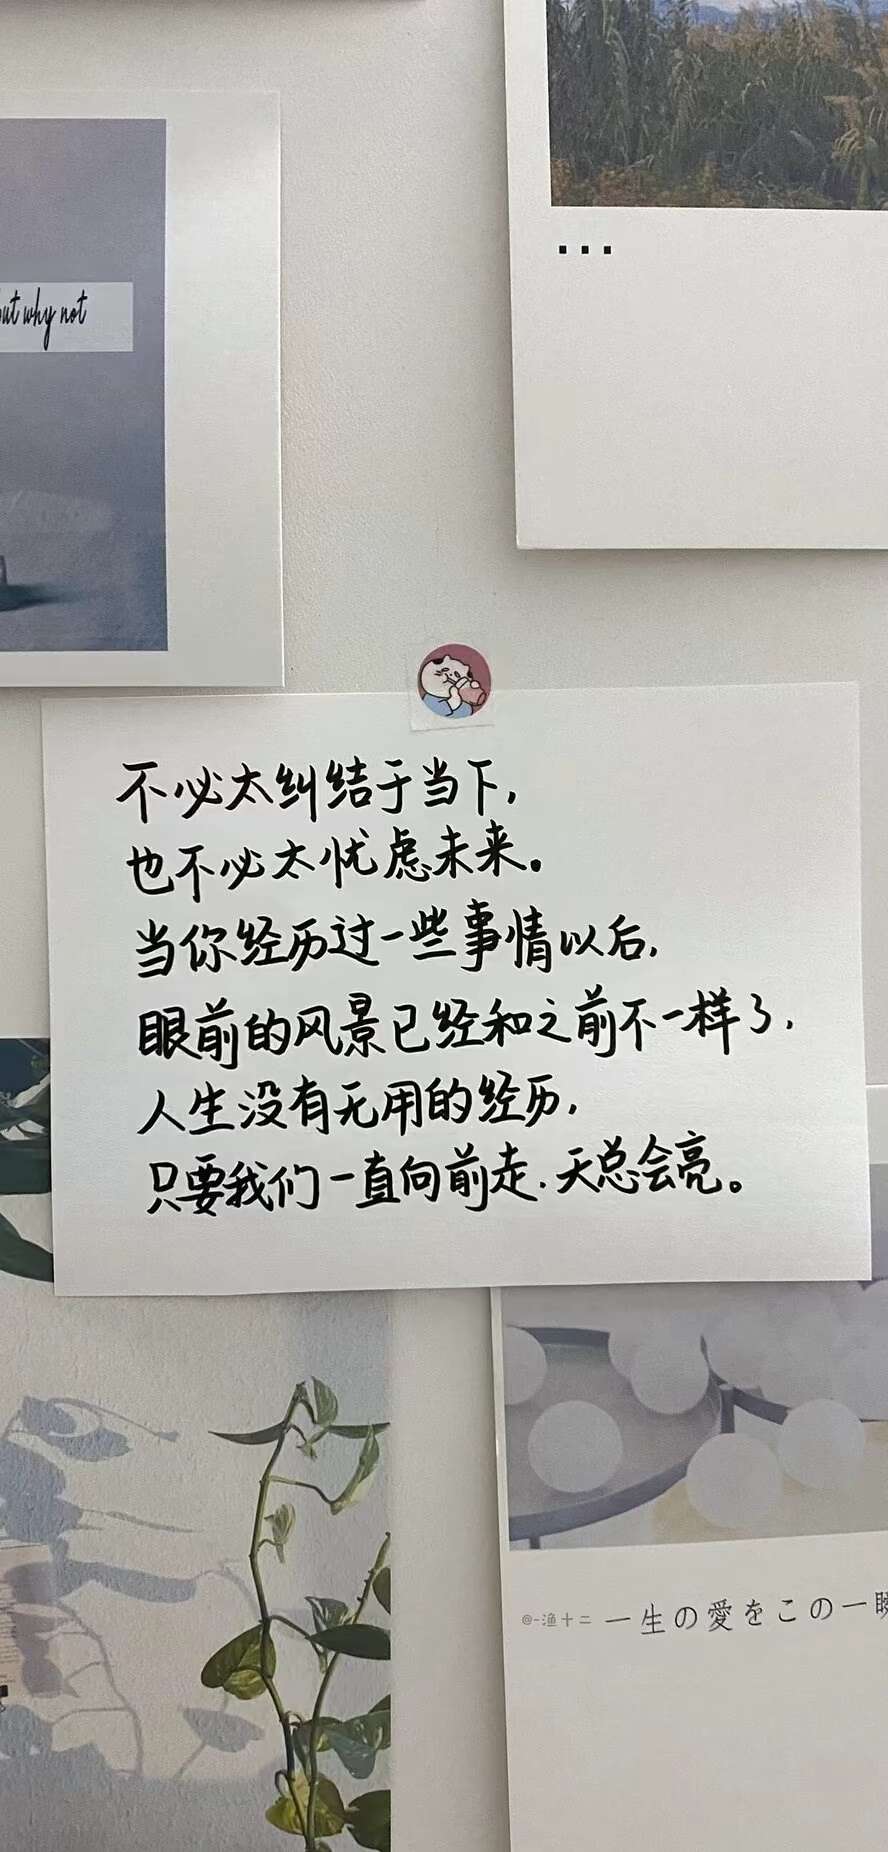 but why not
...
不必太纠结于当下,
也不必太忧虑未来。
当你经历过一些事情以后,
眼前的风景已经和之前不一样了,
人生没有无用的经历,
只要我们一直向前走.天总会亮。
@-渔十二 一生の愛をこの一瞬